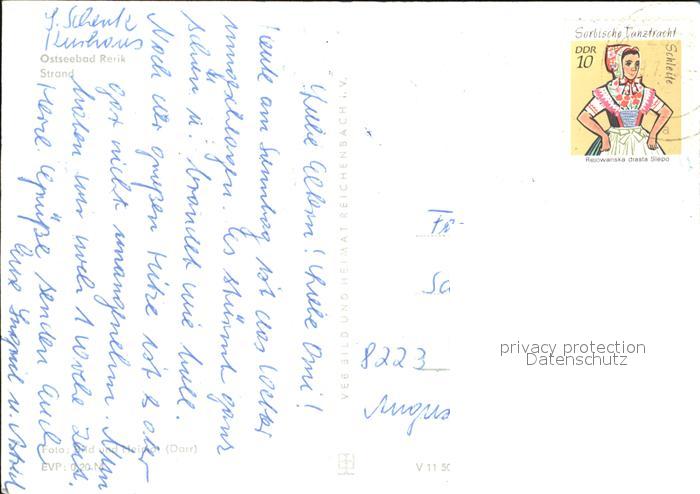 J. Schenk
Kurhaus
Ostseebad Rerik
Strand
Liebe Eltern! Liebe Omi!
Heute am Sonntag ist das Wetter
umgeschlagen. Es stürmt ganz
schön u. brandet wie toll.
Nach der großen Hitze ist es aber
gar nicht unangenehm. Nun
haben wir noch 1 Woche Zeit.
Herzl. Grüße senden Euch
Eure Ingrid u. Astrid
Foto: Bild und Heimat (Darr)
EVP: 0,20 M
VEB BILD UND HEIMAT REICHENBACH i. V.
V 11 50
Sorbische Tanztracht
Schleife
DDR
10
Rejowanska drasta Slepo
Fa
Sc
8223
Augus
privacy protection
Datenschutz